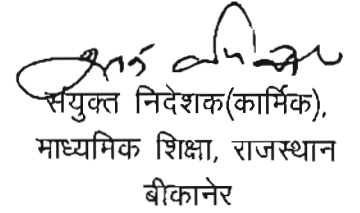 संयुक्त निदेशक(कार्मिक),
माध्यमिक शिक्षा, राजस्थान
बीकानेर